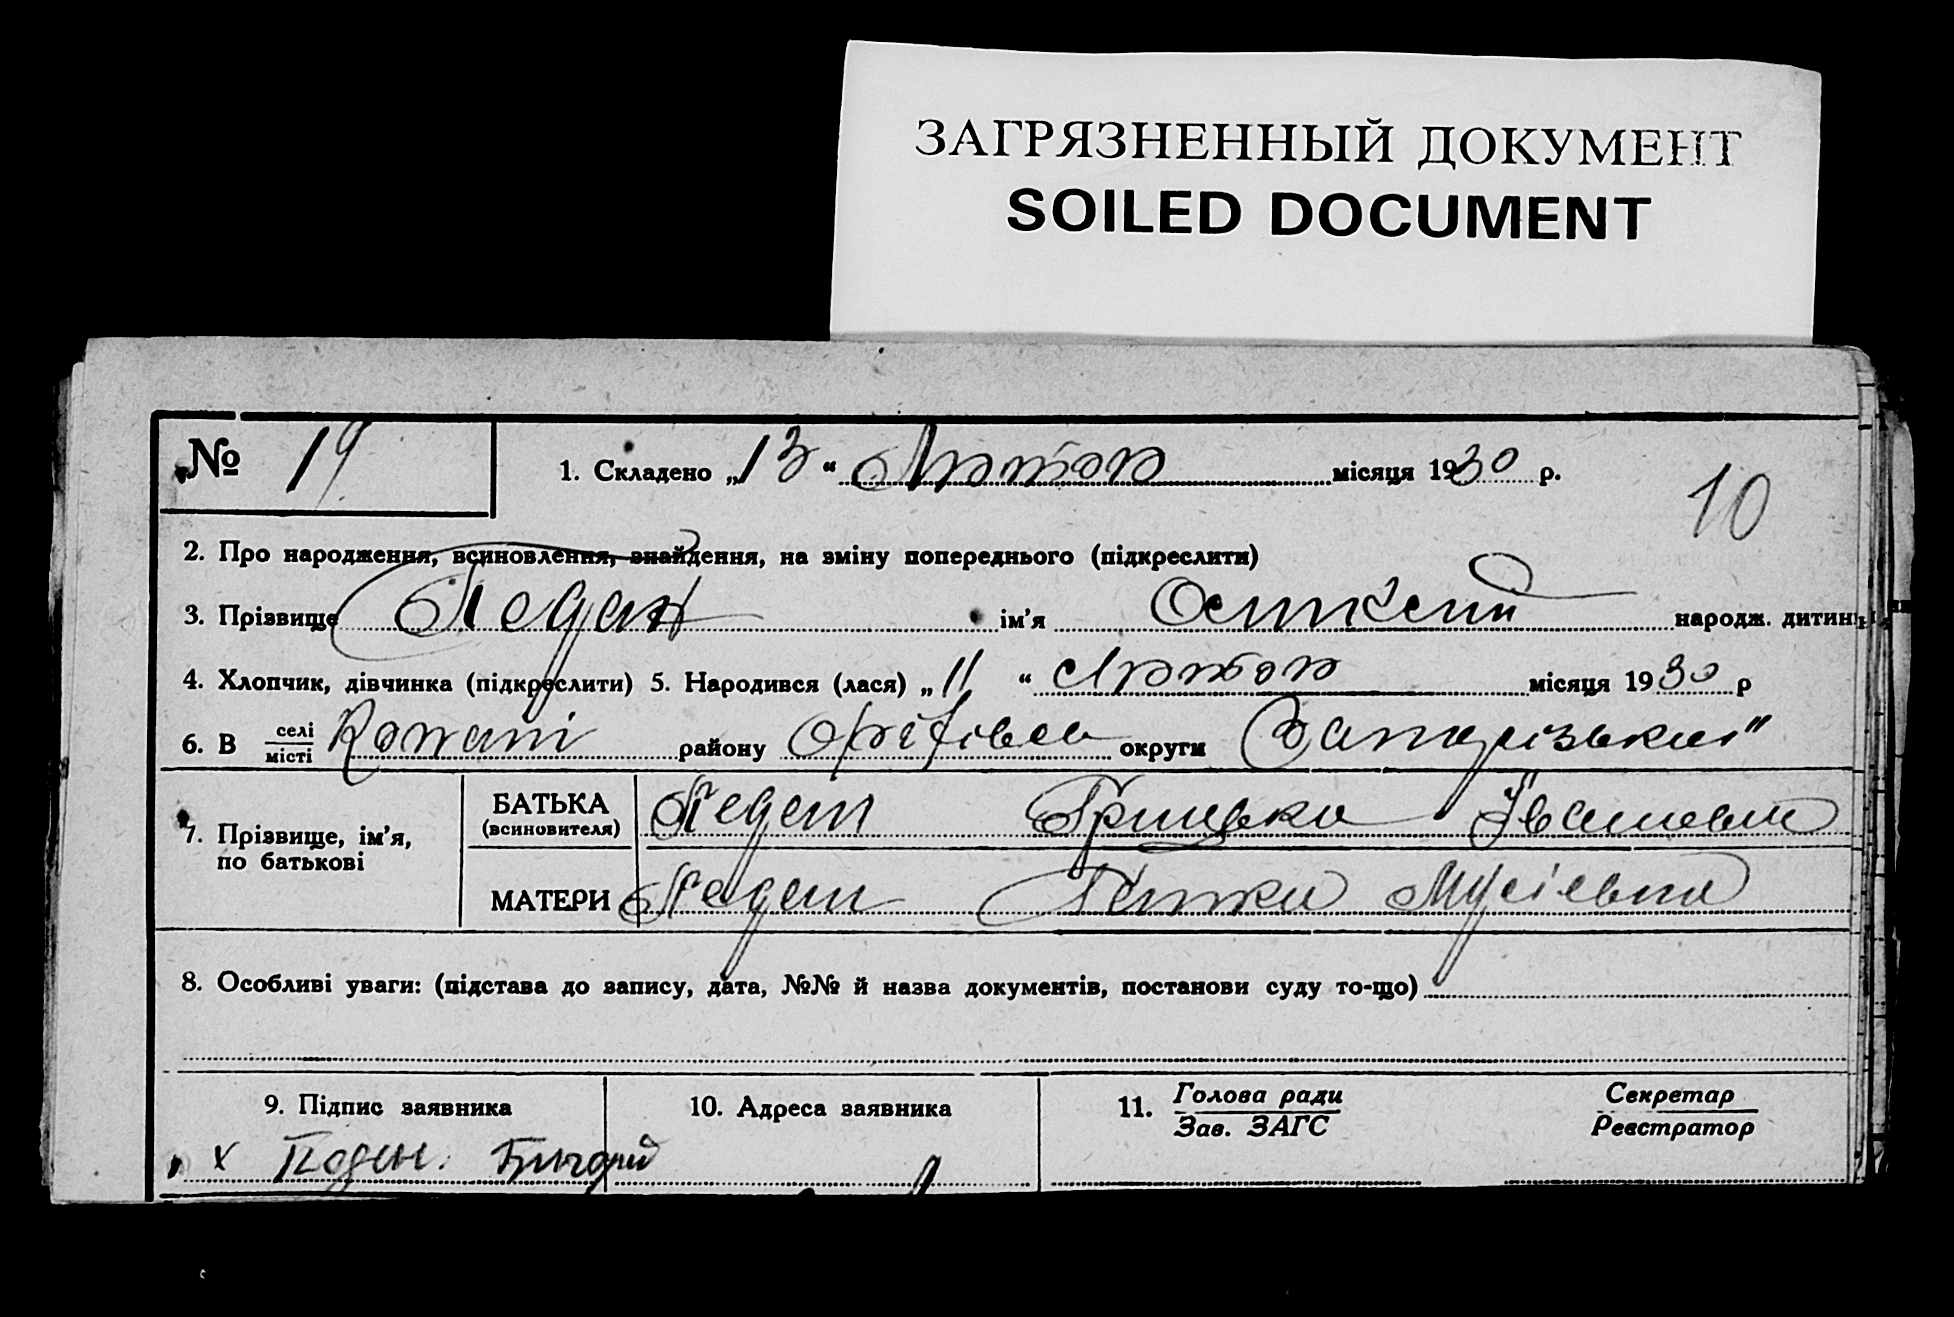 ЗАГРЯЗНЕННЫЙ ДОКУМЕНТ
SOILED DOCUMENT
№ 19
1. Складено „13“ Лютого місяця 1930 р.
10
2. Про народження, всиновлення, знайдення, на зміну попереднього (підкреслити)
3. Прізвище Педан ім'я народж. дитини
4. Хлопчик, дівчинка (підкреслити) 5. Народився (лася) „11“ Лютого місяця 1930 р
6. В селі місті Копані району Оріхівсь округи Запорізький
7. Прізвище, ім'я, по батькові
БАТЬКА (всиновителя) Педан Грицько Іванович
МАТЕРИ Педан Мусіевна
8. Особливі уваги: (підстава до запису, дата, №№ й назва документів, постанови суду то-що)
9. Підпис заявника
10. Адреса заявника
11. Голова ради Зав. ЗАГС
Секретар Реєстратор
х Педан.